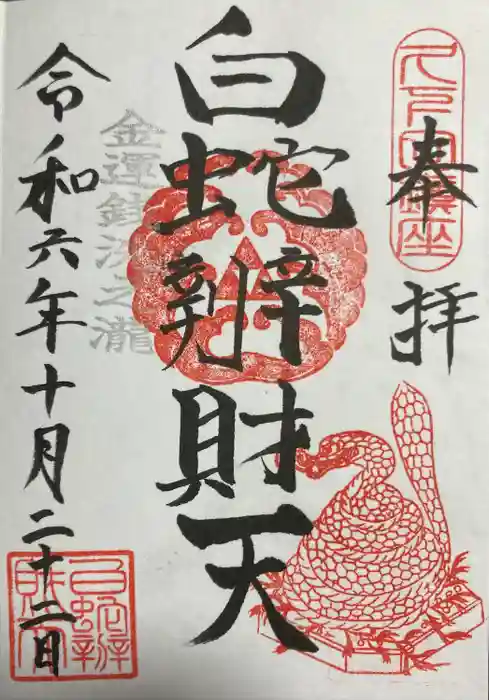 奉拝
白蛇辨財天
金運銭洗之瀧
令和六年十月二十二日
白蛇辨財天